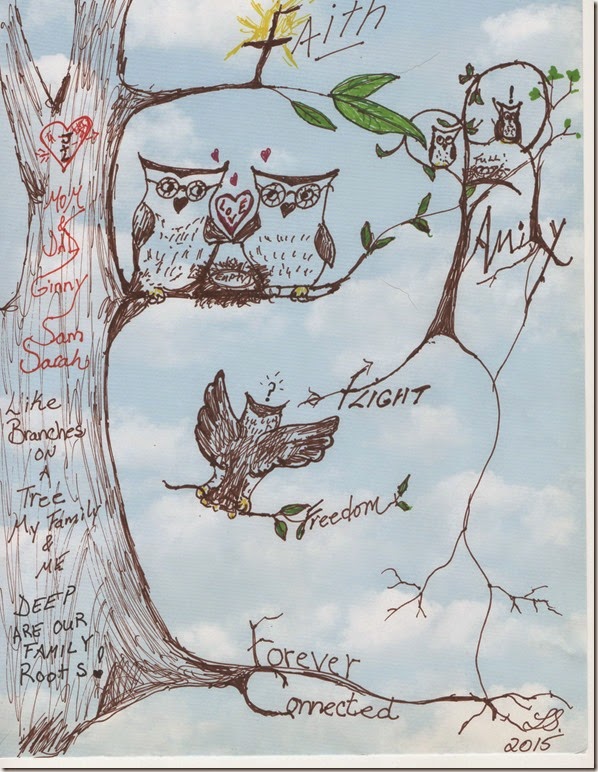 FAith
MOM
&
DAD
Ginny
Sam
Sarah
Like
Branches
ON
A
Tree
My Family
&
ME
DEEP
ARE OUR
FAMILY
ROOTS!
LOVE
EMPTY
!
FULL!
FAmily
?
FLIGHT
Freedom
Forever
Connected
2015